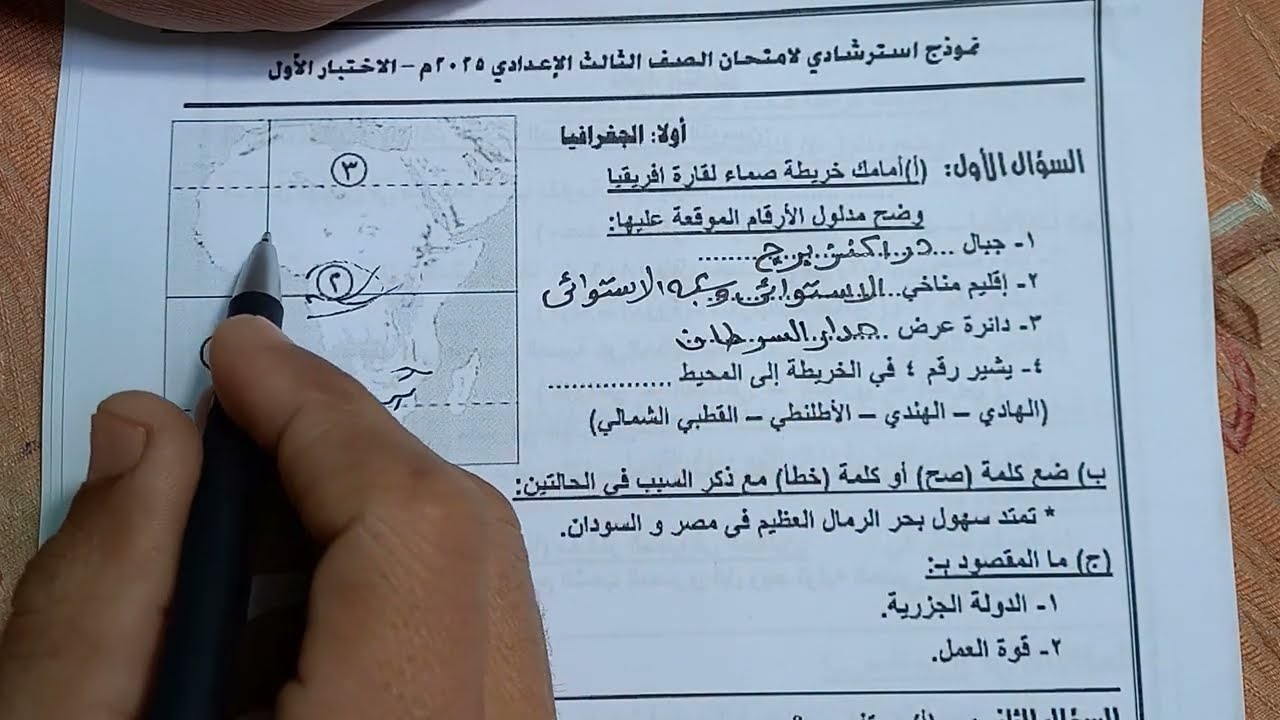 نموذج استرشادي لامتحان الصف الثالث الإعدادي ٢٠٢٥م – الاختبار الأول
أولا: الجغرافيا
السؤال الأول: (أ)أمامك خريطة صماء لقارة افريقيا
وضح مدلول الأرقام الموقعة عليها:
١- جبال ...دراكنزبرج.........
٢- إقليم مناخي...الاستوائي وشبه الاستوائى
٣- دائرة عرض ...مدار السرطان
٤- يشير رقم ٤ في الخريطة إلى المحيط ................
(الهادي – الهندي – الأطلنطي – القطبي الشمالي)
ب) ضع كلمة (صح) أو كلمة (خطأ) مع ذكر السبب في الحالتين:
* تمتد سهول بحر الرمال العظيم فى مصر و السودان.
(ج) ما المقصود بـ:
١- الدولة الجزرية.
٢- قوة العمل.
٣
٢